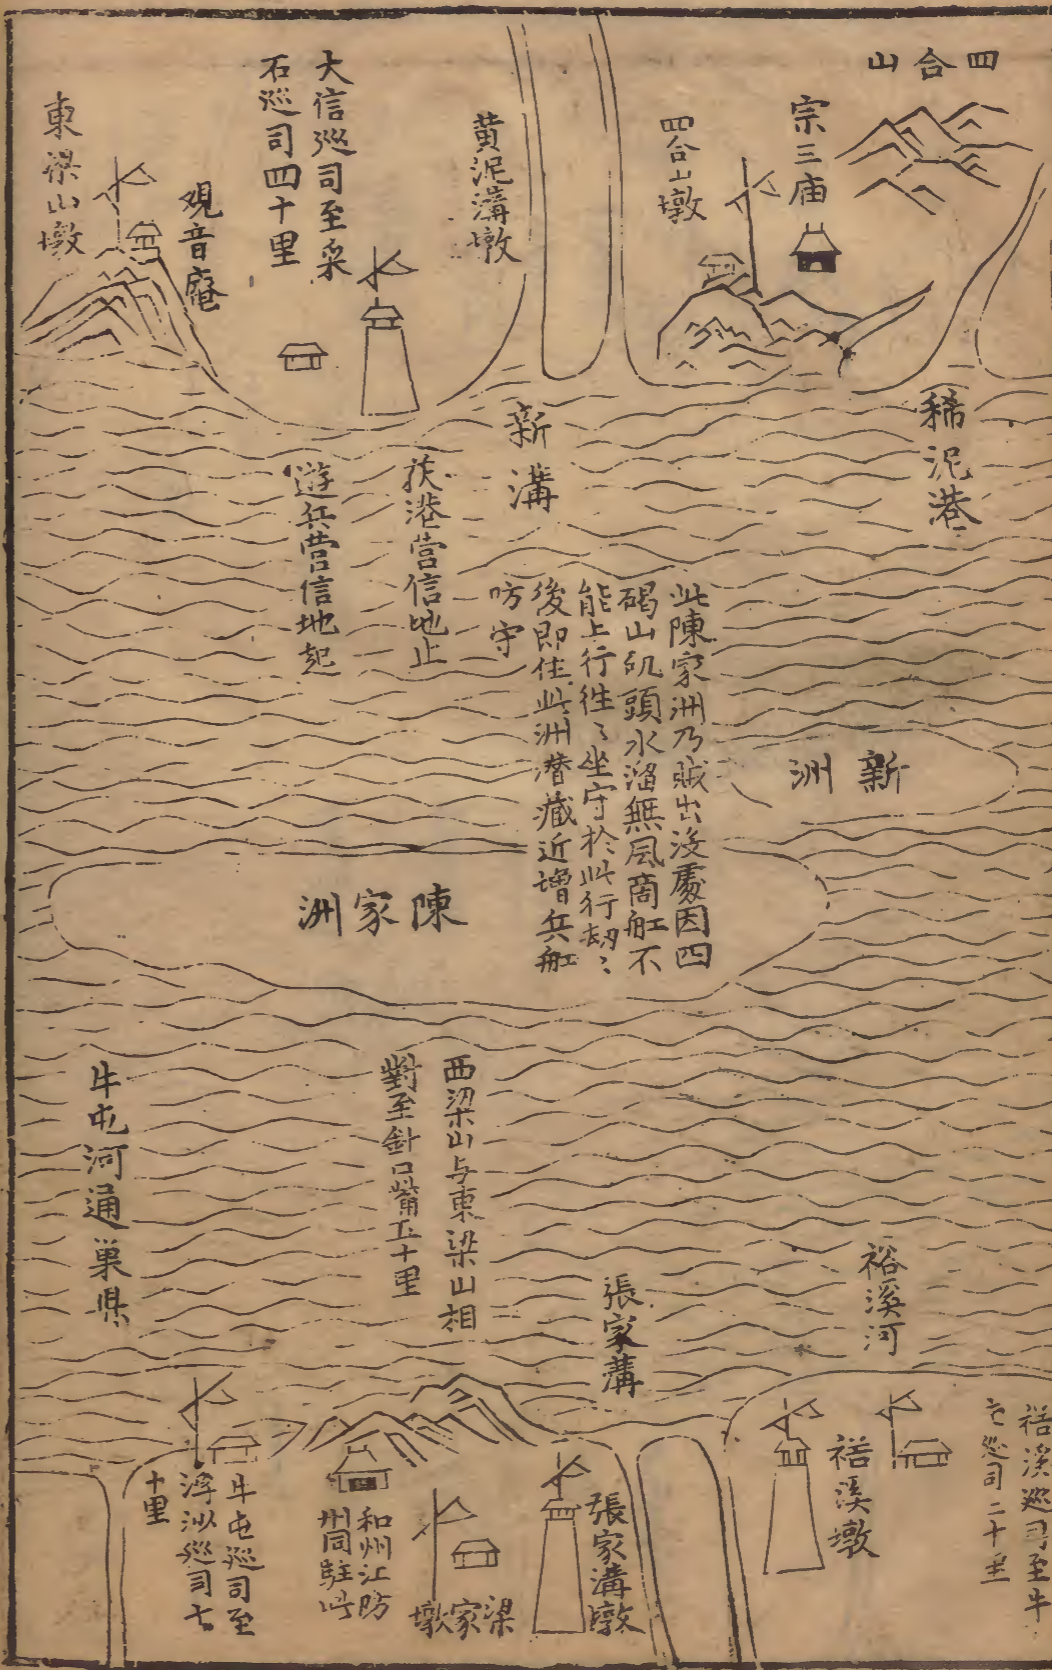 四合山
宗三庙
四合山墩
黄泥溝墩
大信巡司至采
石巡司四十里
觀音庵
東梁山墩
稀泥港
新溝
荻港营信地止
遊兵营信地起
此陳家洲乃賊出没處因四
碣山矶頭水溜無風商舡不
能上行徃〻坐守於此行刼〻
後即住此洲潜藏近增兵舡
防守
新洲
陳家洲
西梁山与東梁山相
對至針口觜五十里
牛屯河通巢県
裕溪河
張家溝
裕溪巡司至牛
屯巡司二十里
裕溪墩
張家溝墩
梁家墩
和州江防
州同駐此
牛屯巡司至
浮沙巡司七
十里